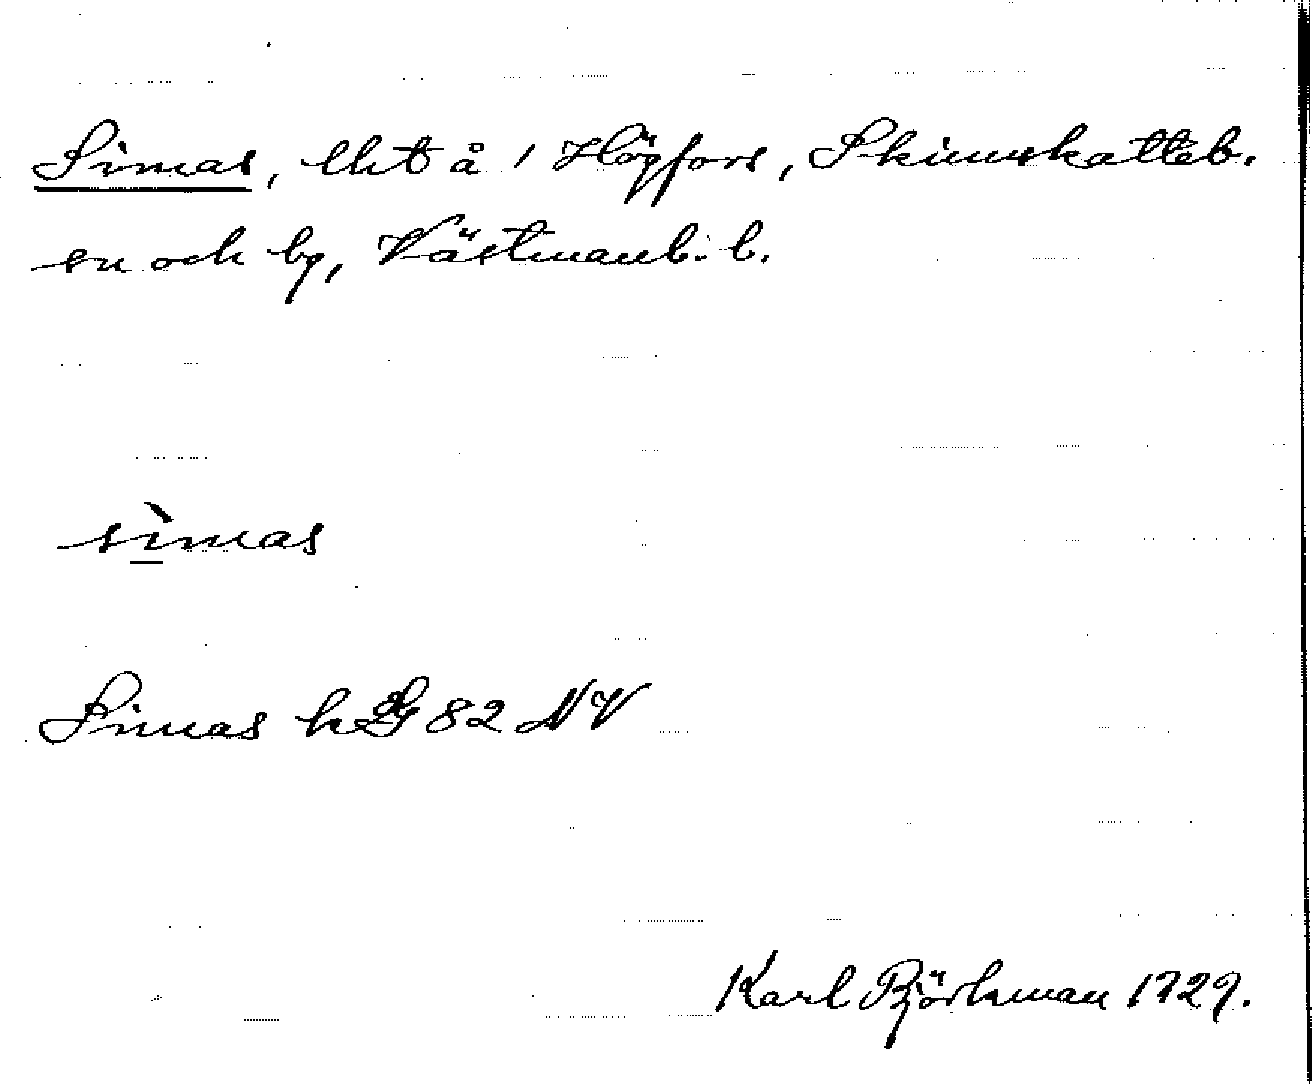 Simas, lht å 1 Högfors, Skinnskatteb.
sn och bg, Västmanl. l.
sìmas
Simas h GG 82 NV
Karl Björkman 1929.